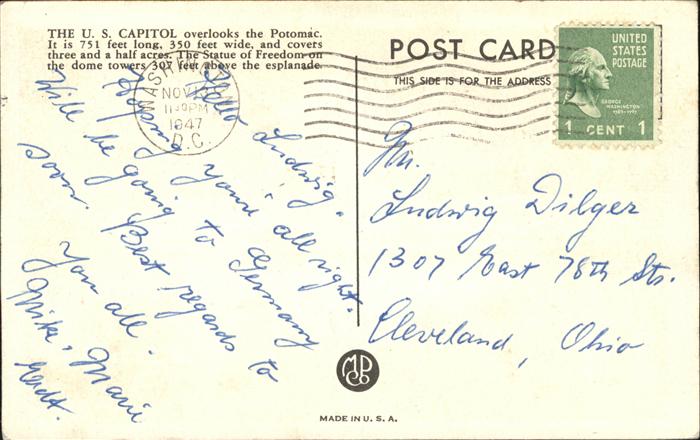 THE U. S. CAPITOL overlooks the Potomac.
It is 751 feet long, 350 feet wide, and covers
three and a half acres. The Statue of Freedom on
the dome towers 307 feet above the esplanade.
POST CARD
THIS SIDE IS FOR THE ADDRESS
UNITED
STATES
POSTAGE
GEORGE
WASHINGTON
1789-1797
1 CENT 1
WASHINGTON
NOV 13
11 PM
1947
D. C.
Hello Ludwig.
Hoping you're all right.
Will be going to Germany
soon. Best regards to
you all.
Mike, Marie
Mr.
Ludwig Dilger
1307 East 78th Sts.
Cleveland, Ohio
MPCo
MADE IN U. S. A.